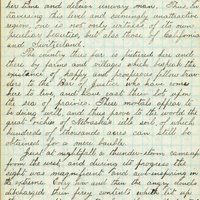 her time and deliver uneasy man. Thus, in
traversing this level and seemingly unattractive
region, one is not only witness of its own
peculiar beauties, but also those of California
and Switzerland.
The country thus far is dotted here and
there by farms and villages, which bespeak the
existence of happy and prosperous fellow trav-
elers to the Bar of Justice, who have come
here to live and have cast their lot upon
the sea of prairie. These mortals appear to
be doing well, and thus prove to the world the
great riches of Nebraska's soil, of which
hundreds of thousands acres can still be
obtained for a mere bauble.
Just at nightfall a thunder-storm came up
from the west, and during its progress the
sight was magnificent and awe-inspiring in
the supreme. Ever now and then the angry clouds
discharged their fiery contents which lit up